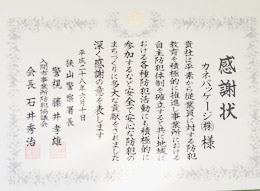 感謝状
カネパッケージ(株)様
貴社は平素から従業員に対する防犯
教育を積極的に推進し事業所における
自主防犯体制を確立すると共に地域に
おける各種防犯活動にも積極的に
参加するなど安全で安心な防犯の
まちづくりに多大な貢献をされました
深く感謝の意を表します
平成二十八年六月十日
狭山警察署長
警視 藤井孝雄
入間市事業所防犯協議会
会長 石井秀治